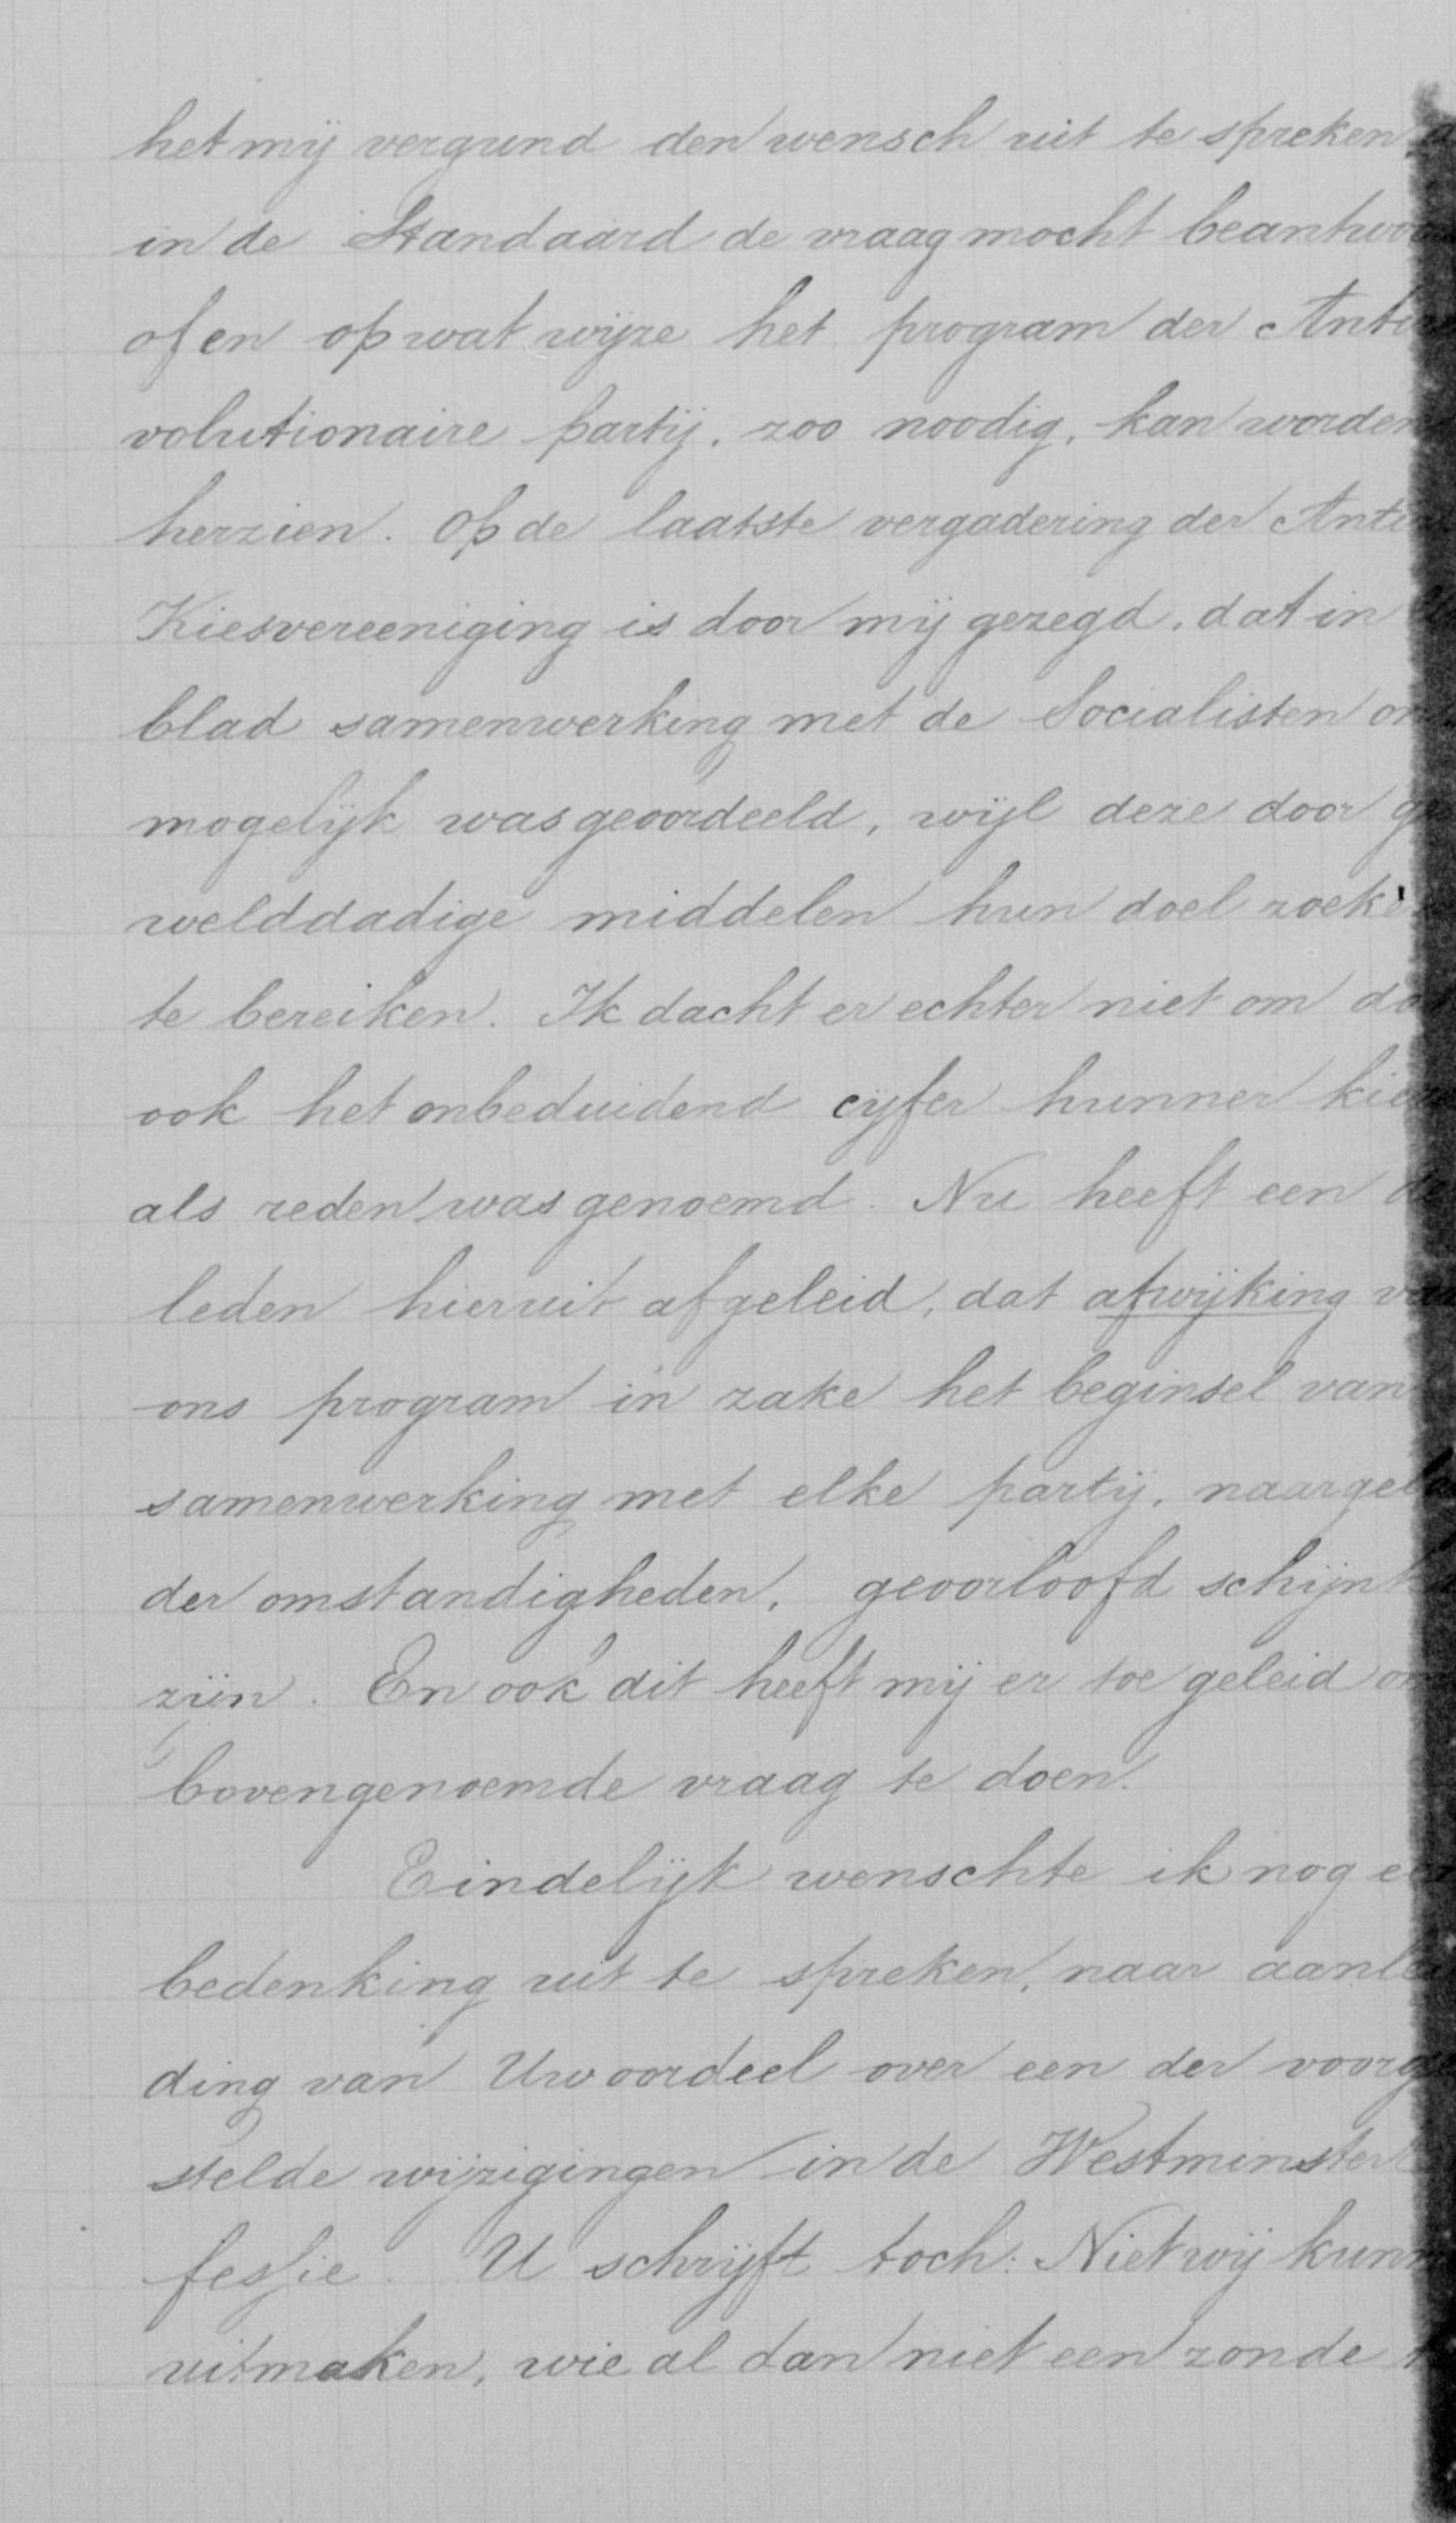 het mij vergund den wensch uit te spreken
in de Standaard de vraag mocht beantwoo
of en op wat wijze het program der Anti
volutionaire partij, zoo noodig, kan worden
herzien. Op de laatste vergadering der Anti
Kiesvereeniging is door mij gezegd, dat in
blad samenwerking met de Socialisten on
mogelijk was geoordeeld, wijl deze door ge
welddadige middelen hun doel zoeke
te bereiken. Ik dacht er echter niet om da
ook het onbeduidend cijfer hunner kie
als reden was genoemd. Nu heeft een de
leden hieruit afgeleid, dat afwijking va
ons program in zake het beginsel van
samenwerking met elke partij, naargel
der omstandigheden, geoorloofd schijnt
zijn. En ook dit heeft mij er toe geleid om
bovengenoemde vraag te doen.
Eindelijk wenschte ik nog ee
bedenking uit te spreken, naar aanlei
ding van Uw oordeel over een der voorge
stelde wijzigingen in de Westminster
fessie. U schrijft toch: Niet wij kunn
uitmaken, wie al dan niet een zonde